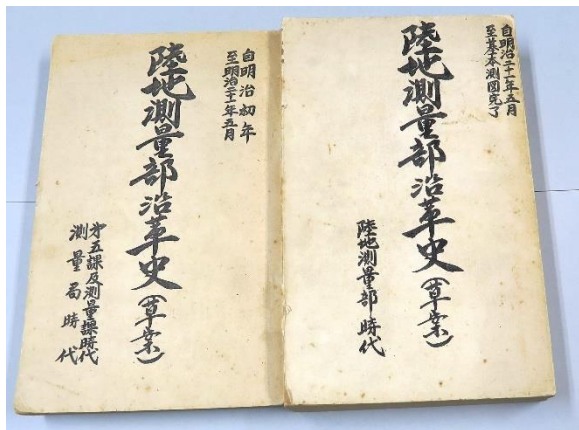 自明治二十一年五月
至基本測図完了
陸地測量部沿革史（草案）
陸地測量部時代
自明治初年
至明治二十一年五月
陸地測量部沿革史（草案）
第五課及測量課時代
測量局時代